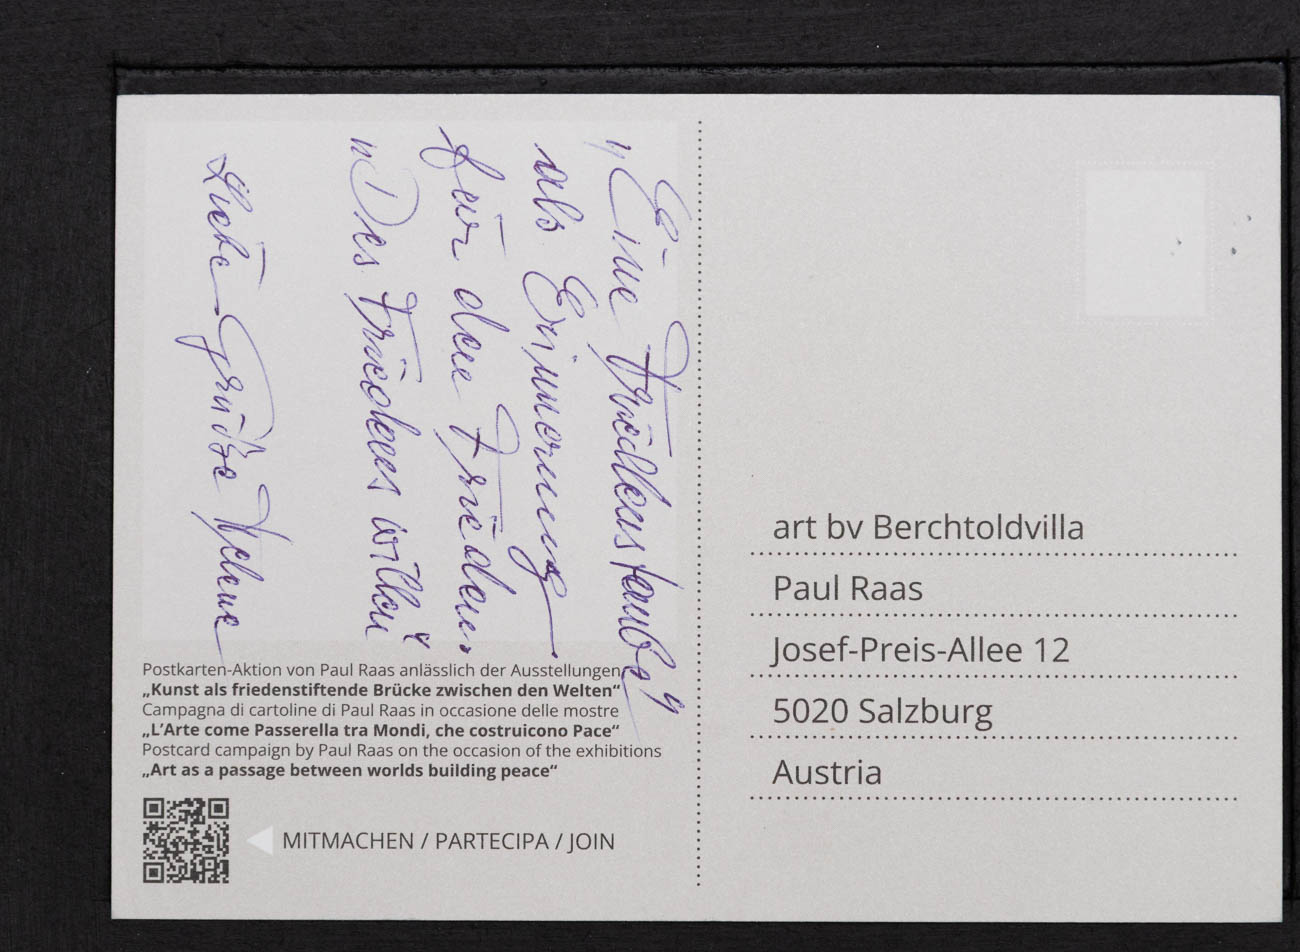 „Eine Friedenstaube"
als Erinnerung
für den Frieden.
„Des Friedens willen"
Liebe Grüße Helene
Postkarten-Aktion von Paul Raas anlässlich der Ausstellungen
„Kunst als friedenstiftende Brücke zwischen den Welten“
Campagna di cartoline di Paul Raas in occasione delle mostre
„L’Arte come Passerella tra Mondi, che costruicono Pace“
Postcard campaign by Paul Raas on the occasion of the exhibitions
„Art as a passage between worlds building peace“
MITMACHEN / PARTECIPA / JOIN
art bv Berchtoldvilla
Paul Raas
Josef-Preis-Allee 12
5020 Salzburg
Austria